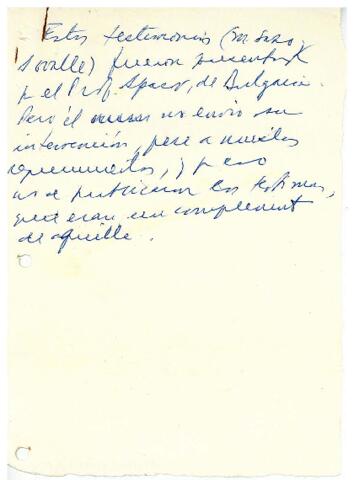 Estos testimonios (
) fueron presentad
p el Prof. Spasov, de Bulgaria.
Pero él no envio su
intervención, pese a nuestros
requerimientos, y p eso
no se publicaron los testimon,
que eran un complement
de aquélla.